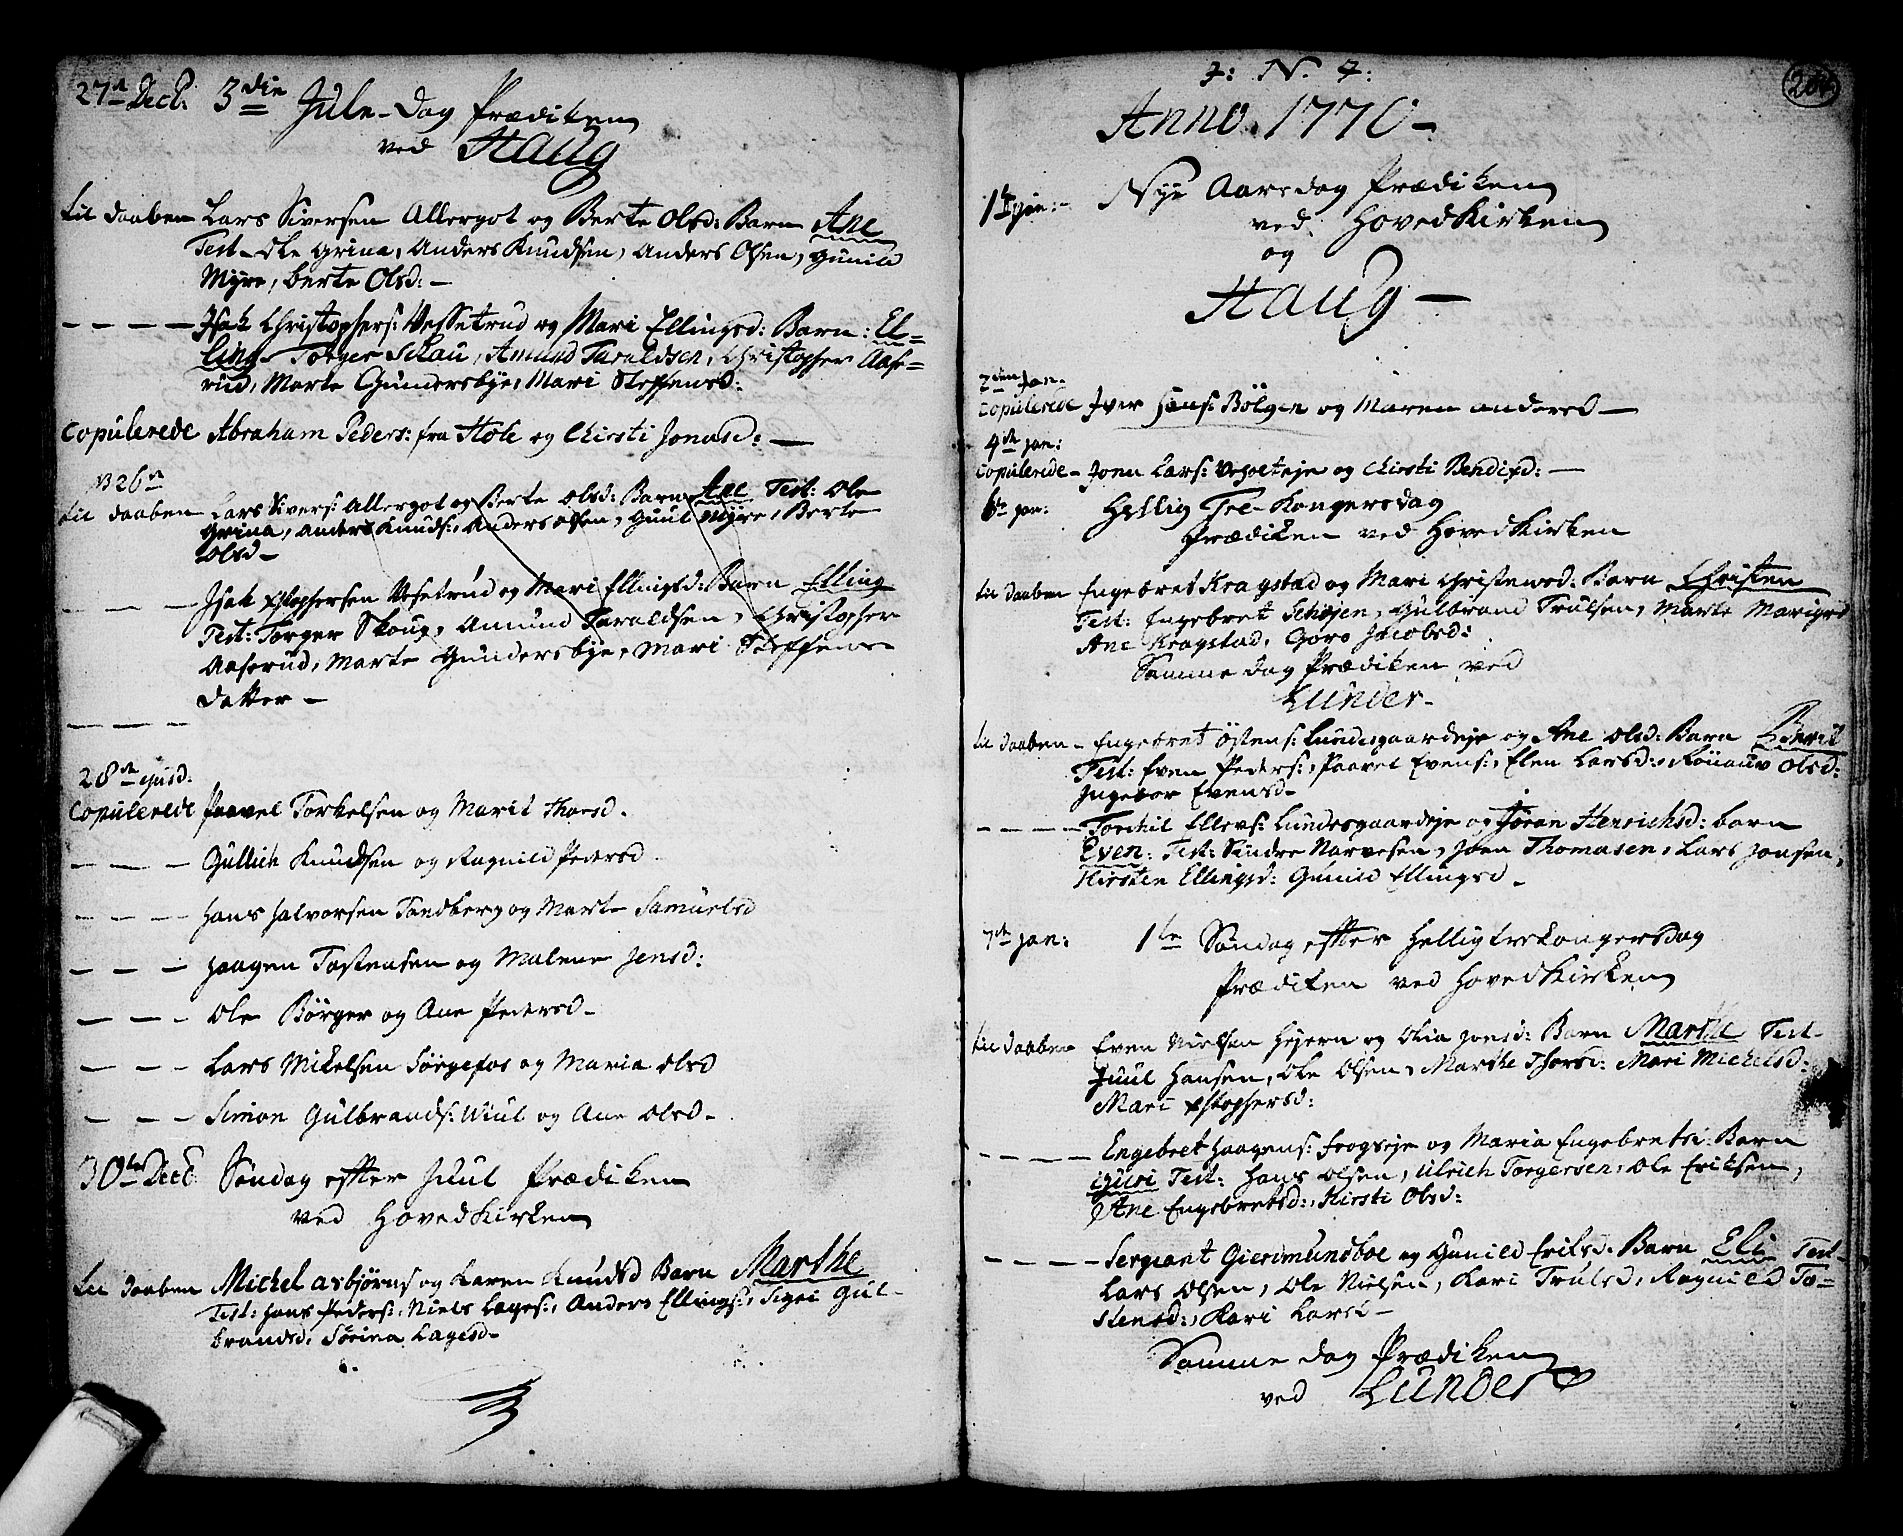 27de Decb: 3die Jule-Dag Prædiken
ved Haug
til daaben Lars Siversen Allergot og Berte Olsd: Barn Ane
Test- Ole Grina, Anders Knudsen, Anders Olsen, Gunild
Myre, berte Olsd: -
- - - - Isak Christophers: Vessetrud og Mari Ellingsd: Barn: El=
ling- Torger Schau, Amund Taraldsen, Christopher Aase=
rud, Marte Gundersbye, Mari Steffensd:
Copulerede Abraham Peders: fra Hole og Chirsti Jonasd: -
NB 26de
til daaben Lars Sivers: Allergot og Berte Olsd: Barn Ane Test: Ole
Grina, Anders Knuds:, Anders Olsen, Guul Myre, Berte
Olsd-
- - - Isak Xstophersen Vesetrud og Mari Ellingsd: Barn Elling
Test: Torger Skoug, Amund Taraldsen, Christopher
Aaserud, Marte Gundersbye, Mari Steffens
datter -
- - -
28de ejusd:
Copulerede Paavel Torkelsen og Marit Thorsd.
- - - Gullich Knudsen og Ragnild Pedersd
- - - Hans Halvorsen Tandberg og Marte Samuelsd
- - - Haagen Tostensen og Malene Jensd:
- - - Ole Börger og Ane Pedersd-
- - - Lars Mikelsen Sörgefos og Maria Olsd
- - - Simon Gulbrands: Wiul og Ane Olsd-
30te Decb Søndag efter Juul Prædiken
ved HovedKirken
til daaben Michel Asbjørns og Karen Knudsd Barn Marthe
Test: Hans Peders:, Niels Lages:, Anders Ellings:, Sigri Gul-
brandsd, Sörina Lagesd-
J: N: J:
204
Anno 1770-
1te Jan:- Nye Aarsdag Prædiken
ved HovedKirken
og
Haug-
2den Jan.
Copulerede Iver Hans: Bölgen og Maren Andersd-
4de Jan:
Copulerede- Jonn Lars: og Chirsti Bendixd: -
6te Jan: Hellig Tre-Kongersdag
Prædiken ved HovedKirken
til daaben Engebret Kragstad og Mari Christensd: Barn Christen
Test: Ingebret Schöjen, Gulbrand Trulsen, Marte
Ane Kragstad, Goro Jacobsd:
Samme dag Prædiken ved
Lunder-
til daaben- Engebret Östens: Lundesgaardeje og Ane Olsd: Barn Berit
Test: Even Peders:, Paavel Evens:, Elen Larsd:, Rönauv Olsd:
Ingebor Evensd-
- - - - Torchil Ellevs: Lundesgaardeje og Jöran Henrichsd: barn
Even: Test: Sindre Narvesen, Joen Thomasen, Lars Jonsen,
Kirsten Ellingsd: Gunild Ellingsd-
7de Jan: 1te Søndag efter Helligtrekongersdag
Prædiken ved HovedKirken
til daaben Even Nielsen Hjern og Olia Jonsd: Barn Marthe Test-
Juul Hansen, Ole Olsen, Marthe Thorsd: Mari Michelsd:
Mari Xstophersd:
- - - - Engebret Haagens: Frogseje og Maria Engebretsd: Barn
Guri Test: Hans Olsen, Ulrich Torgersen, Ole Eriksen,
Ane Engebretsd:, Kirsti Olsd:
- - - - Sergeant Gierdmundboe og Gunild Eriksd: Barn Eli Test-
Lars Olsen, Ole Nielsen, Kari Trulsd, Ragnild To=
stensd:, Kari Larsd-
Samme dag Prædiken
ved Lunder